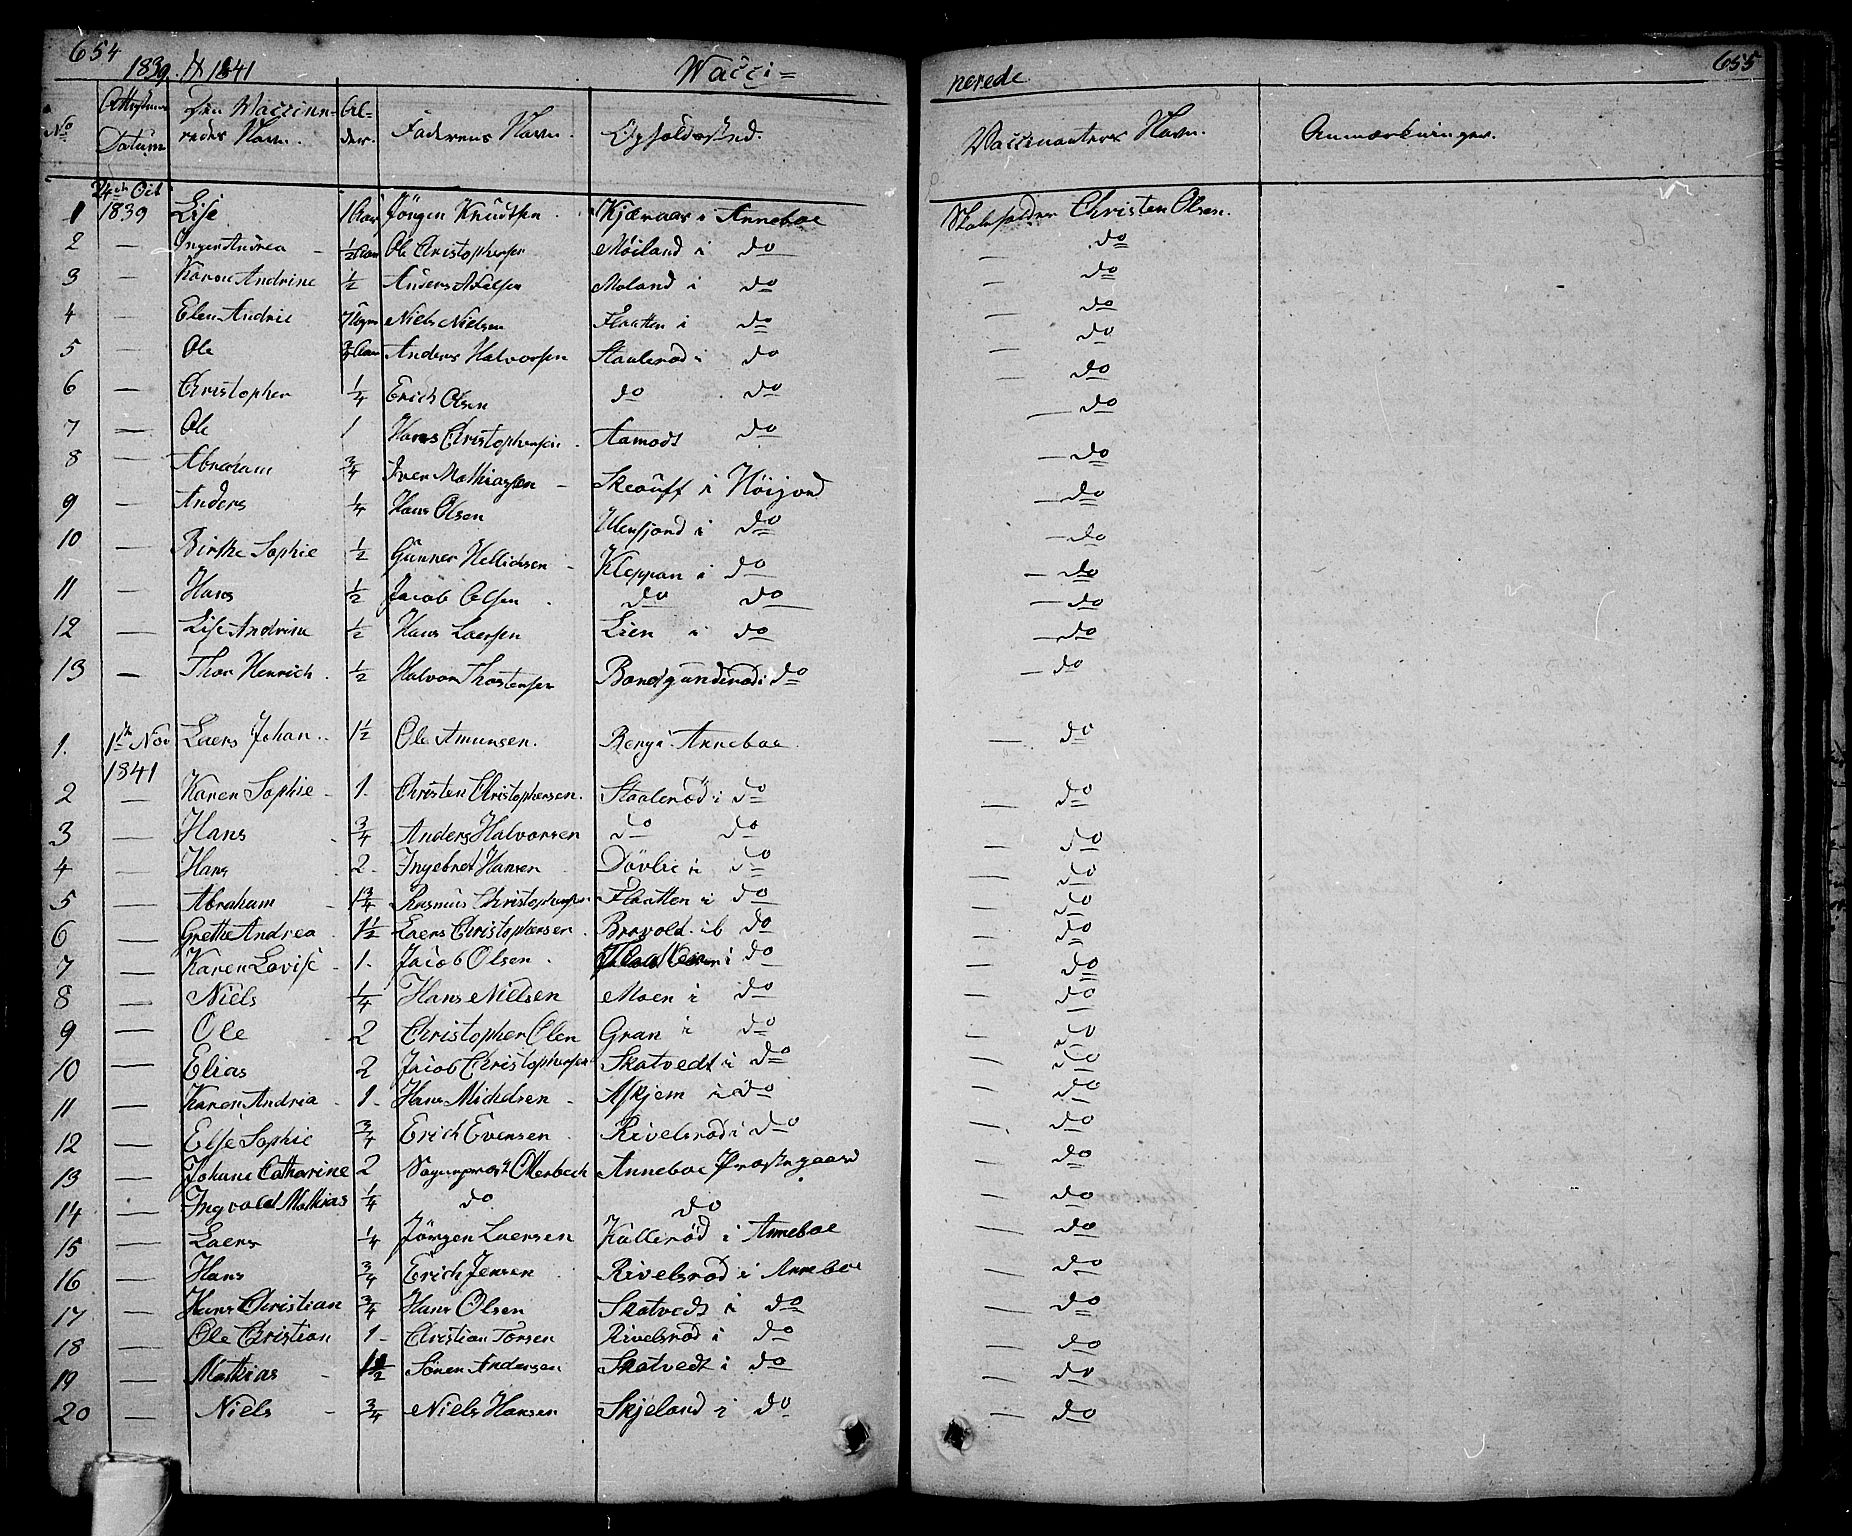 654 1839. & 1841 Wacci= nerede 655
No Attestens Datum Den Waccinn= redes Navn. Al= der. Faderens Navn. Opholdssted. Waccinanters Navn. Anmærkninger.
24de Oct
1 1839 Lise 1 Aar Jörgen Knudsen. Kjæraas i Anneboe Skoleholder Christen Olsen.
2 — Inger Andrea - 1/2 Aar Ole Christophersen Möiland i do — do
3 — Karen Andrine 1/2 Anders Moland i do — do
4 — Elen Andrie Niels Nielsen Flaatten i do — do
5 — Ole Anders Halvorsen Staalerod i do — do
6 — Christopher 1/4 Erich Olsen do do — do
7 — Ole 1 Hans Christophersen. Aamodt do — do
8 — Abraham 3/4 Iver Mathiassen - i Höijord — do
9 — Anders 1/4 Hans Olsen i do — do
10 — Birthe Sophie 1/2 Gunner Hellichsen - Kleppan i do — do
11 — Hans 1/2 Jacob Olsen. do do — do
12 — Lise Andrine 1/2 Hans Laersen Lien i do — do
13 — Thor Henrich. 1/2 Halvor Thostensen i do — do
1. 1ste Nov Laers Johan.. 1 1/2 Ole Amunsen. Berg i Anneboe. — do
1841
2 — Karen Sophie - 1. Christen Christophersen. Staaleröd i do — do
3 — Hans - 3/4 Anders Halvorsen do do — do
4 — Hans . 2. Ingebret Hansen Dövlie i do — do
5 — Abraham - 1 3/4 Rasmus Christophersen Flaatten i do — do
6 — Grethe Andrea . 1 1/2 Laers Christophersen. Bravold do — do
7 — Karen Lovise - 1. Jacob Olsen. i do — do
8 — Niels 1/4 Hans Nielsen Moen i do — do
9 — Ole - 2 Christopher Olen Gran i do — do
10 — Elias 2 Jacob Christophersen Skatvedt i do — do
11 — Karen Andria - 1- Hans Michelsen - Askjem i do — do
12 — Else Sophie 3/4 Erich Evensen . Rivelsrod i do — do
13 — Johane Catharine 2 Sogneprest Otterbech Anneboe Prestegaard — do
14 — Ingvald Mathias 1/4 do. do — do
15 — Laers 1/4 Jörgen Laersen Kalleröd i Anneboe — do
16 — Hans 3/4 Erich Jensen . Rivelsrod i Anneboe — do
17 — Hans Christian 3/4 Hans Olsen Skatvedt i do — do
18 — Ole Christian 1- Christian Torsen Rivelsrod i do — do
19 — Mathias - 1 1/2 Sören Andersen Skatvedt i do — do
20 — Niels - 3/4 Niels Hansen Skjeland i do — do